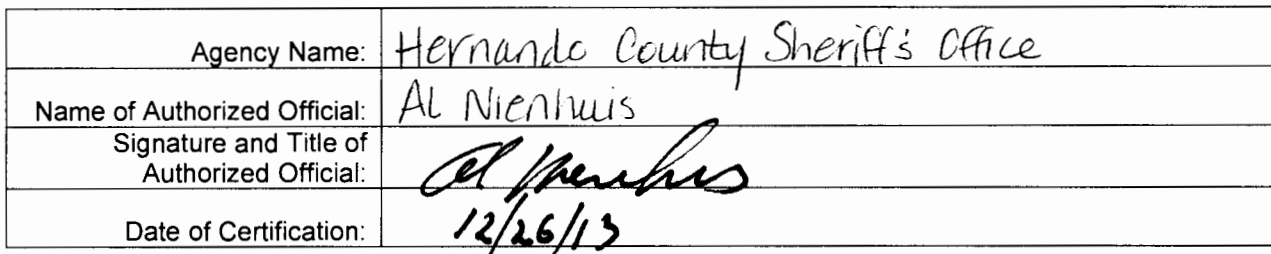 Agency Name: Hernando County Sheriff's Office
Name of Authorized Official: Al Nienhuis
Signature and Title of
Authorized Official: Al Nienhuis
Date of Certification: 12/26/13